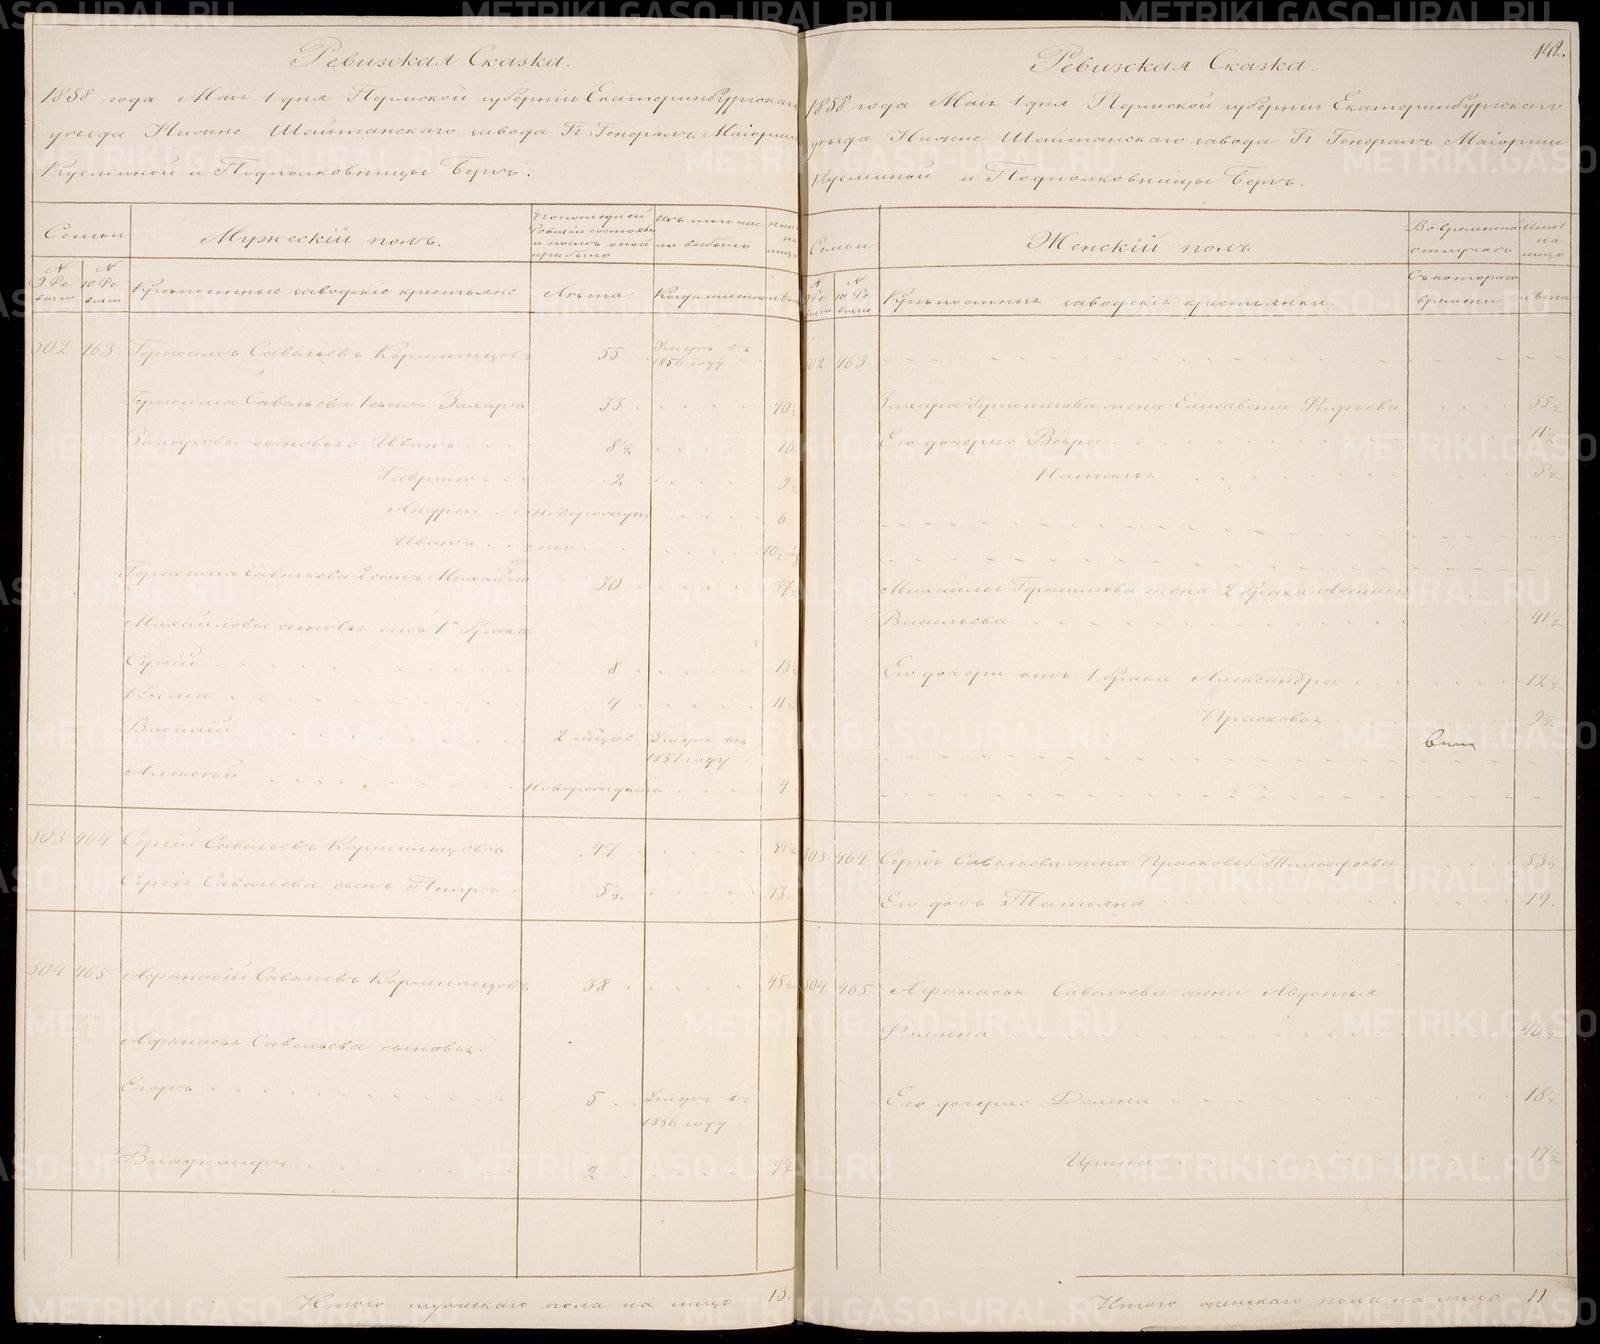 Ревизская Сказка.
1858 года Маія 1 дня Пермской губерніи Екатеринбургскаго
уѣзда Нижне Шайтанскаго завода Гг. Генералъ Маіорши
Кузьминой и Подполковницы Бергъ.
Семьи
Мужескій полъ.
№ 9 Ревизіи
№ 10 Ревизіи
Крѣпостные заводскіе крестьяне
Лѣта
Когда именно
502 463 Герасимъ Савельевъ Кормильцовъ 55 Умеръ въ 1856 году
Герасима Савельева 1 сынъ Захаръ 33 40½
Захаровы сыновья: Иванъ 8½ 16
Гаврило 2 9½
Андрей новорожден 6
Иванъ
Герасима Савельева 2 сынъ Михайло 30 37½
Михайловы сыновья отъ 1го брака
Сергій 8 15½
Козьма 4 11½
Василій Умеръ въ 1851 году
Алексѣй Новорожденъ 4
503 464 Сергій Савельевъ Кормильцовъ 47 54½
Сергія Савельева сынъ Петръ 5½ 13.
504 465 Афанасій Савельевъ Кормильцовъ 38 45½
Афанасья Савельева сыновья:
Егоръ 5 Умеръ въ 1856 году
Владимиръ 2 9½
Итого мужескаго пола на лицо 13.
142.
Ревизская Сказка.
1858 года Маія 1 дня Пермской губерніи Екатеринбургскаго
уѣзда Нижне Шайтанскаго завода Гг Генералъ Маіорши
Кузьминой и Подполковницы Бергъ.
Семьи
Женскій полъ
Во временной отлучкѣ
Нынѣ на лицо
№ 9 Ревизіи
№ 10 Ревизіи
Крѣпостныя заводскія крестьянки.
Съ котораго времени
Лѣта
502 463
Захара Герасимова жена Елисавета 35½
Его дочери: Вѣра 11½
Наталья 3½
Михайлы Герасимова жена 2 брака Аксинья
Васильева 41½
Его дочери отъ 1 брака Александра 12½
Прасковья 9½
503 464 Сергія Савельева жена Прасковья Тимофеева 53½
Его дочь Татьяна 19.
504 465 Афанасья Савельева жена Авдотья
Фомина 46½
Его дочери: Домна 18½
Ирина 17½
Итого женскаго пола на лицо 11
METRIKI.GASO-URAL.RU